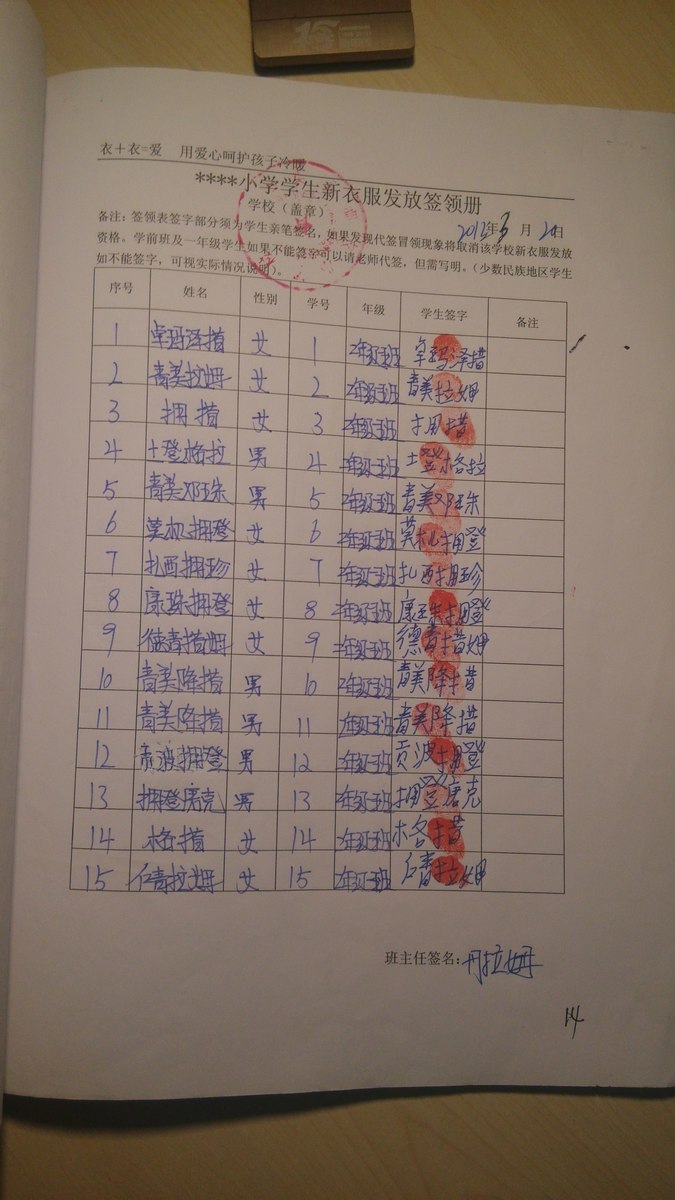 衣＋衣=爱 用爱心呵护孩子冷暖
****小学学生新衣服发放签领册
学校（盖章） 2013年3月20日
备注：签领表签字部分须为学生亲笔签名，如果发现代签冒领现象将取消该学校新衣服发放
资格。学前班及一年级学生如果不能签字可以请老师代签，但需写明。（少数民族地区学生
如不能签字，可视实际情况说明）。
序号 姓名 性别 学号 年级 学生签字 备注
1 卓玛泽措 女 1 2年级1班 卓玛泽措
2 青美拉姆 女 2 2年级1班 青美拉姆
3 拥措 女 3 2年级1班 拥措
4 土登格拉 男 4 2年级1班 土登格拉
5 青美邓珠 男 5 2年级1班 青美邓珠
6 莫机拥登 女 6 2年级1班 莫机拥登
7 扎西拥珍 女 7 2年级1班 扎西拥珍
8 康珠拥登 女 8 2年级1班 康珠拥登
9 德青措姆 女 9 2年级1班 德青措姆
10 青美降措 男 10 2年级1班 青美降措
11 青美降措 男 11 2年级1班 青美降措
12 贡波拥登 男 12 2年级1班 贡波拥登
13 拥登唐克 男 13 2年级1班 拥登唐克
14 格措 女 14 2年级1班 格措
15 仁青拉姆 女 15 2年级1班 仁青拉姆
班主任签名：丹拉姆
14